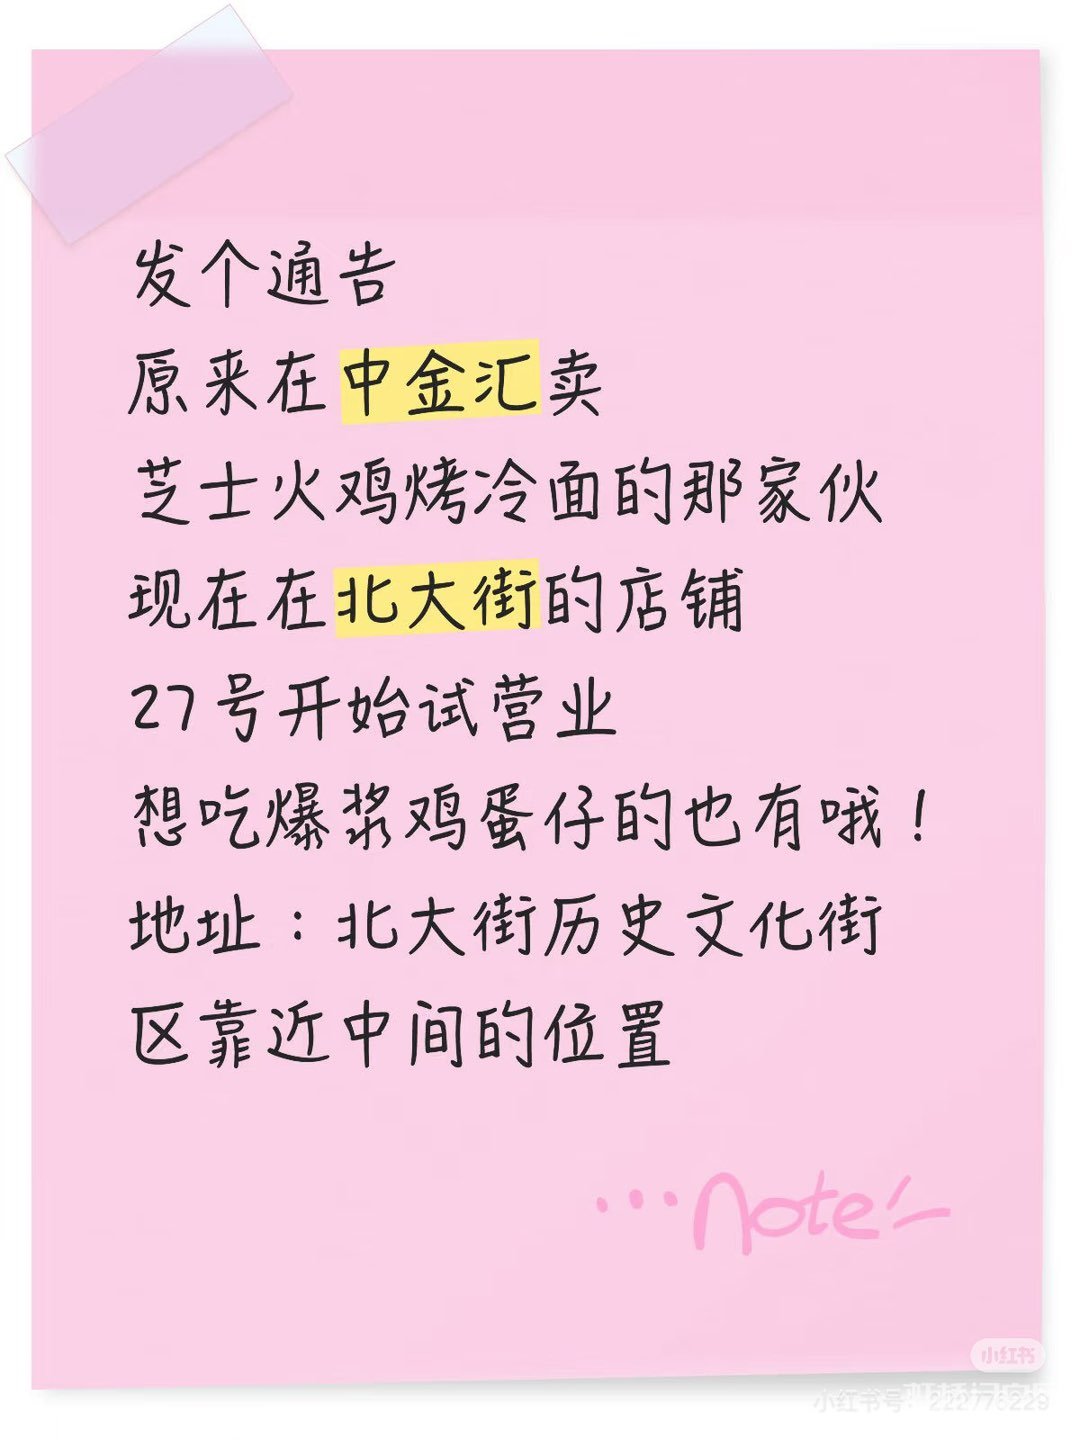 发个通告
原来在中金汇卖
芝士火鸡烤冷面的那家伙
现在在北大街的店铺
27号开始试营业
想吃爆浆鸡蛋仔的也有哦！
地址：北大街历史文化街
区靠近中间的位置
...note
小红书
小红书号：222776229